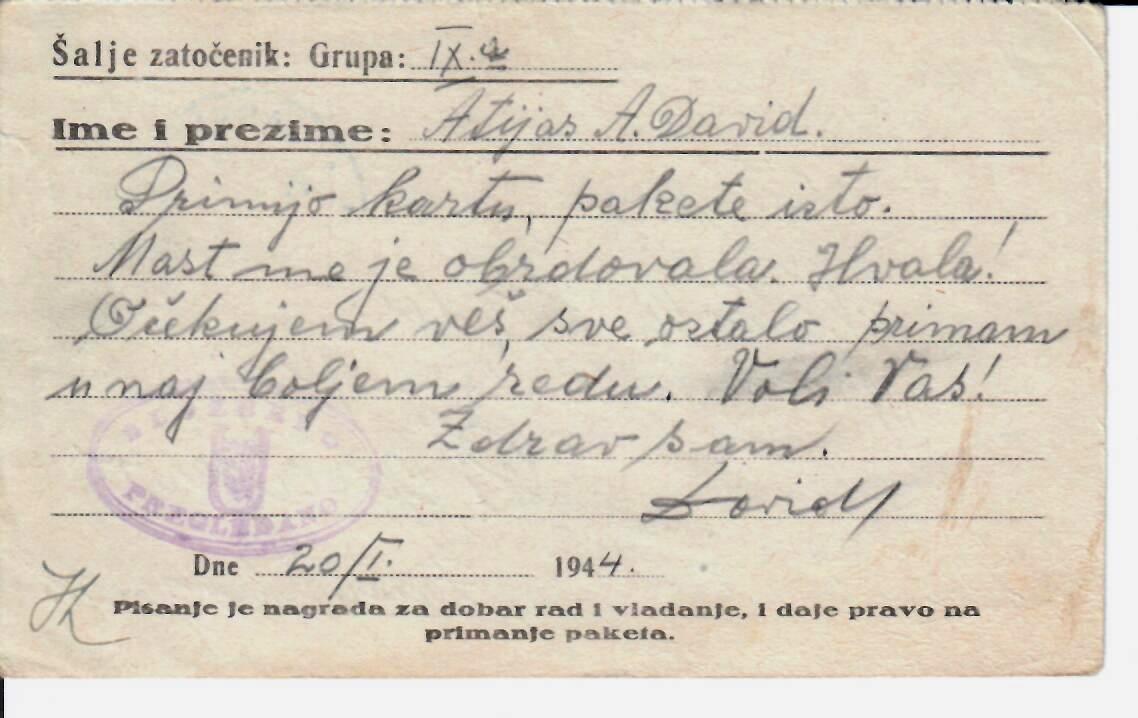 Šalje zatočenik: Grupa: IX.a
Ime i prezime: Atijas A. David.
Primijo kartu, pakete isto.
Mast me je obrdovala. Hvala!
Očekujem veš, sve ostalo primam
u naj boljem redu. Voli Vas!
Zdrav sam.
David
PREGLEDANO
Dne 20/I. 1944.
Pisanje je nagrada za dobar rad i vladanje, i daje pravo na
primanje paketa.